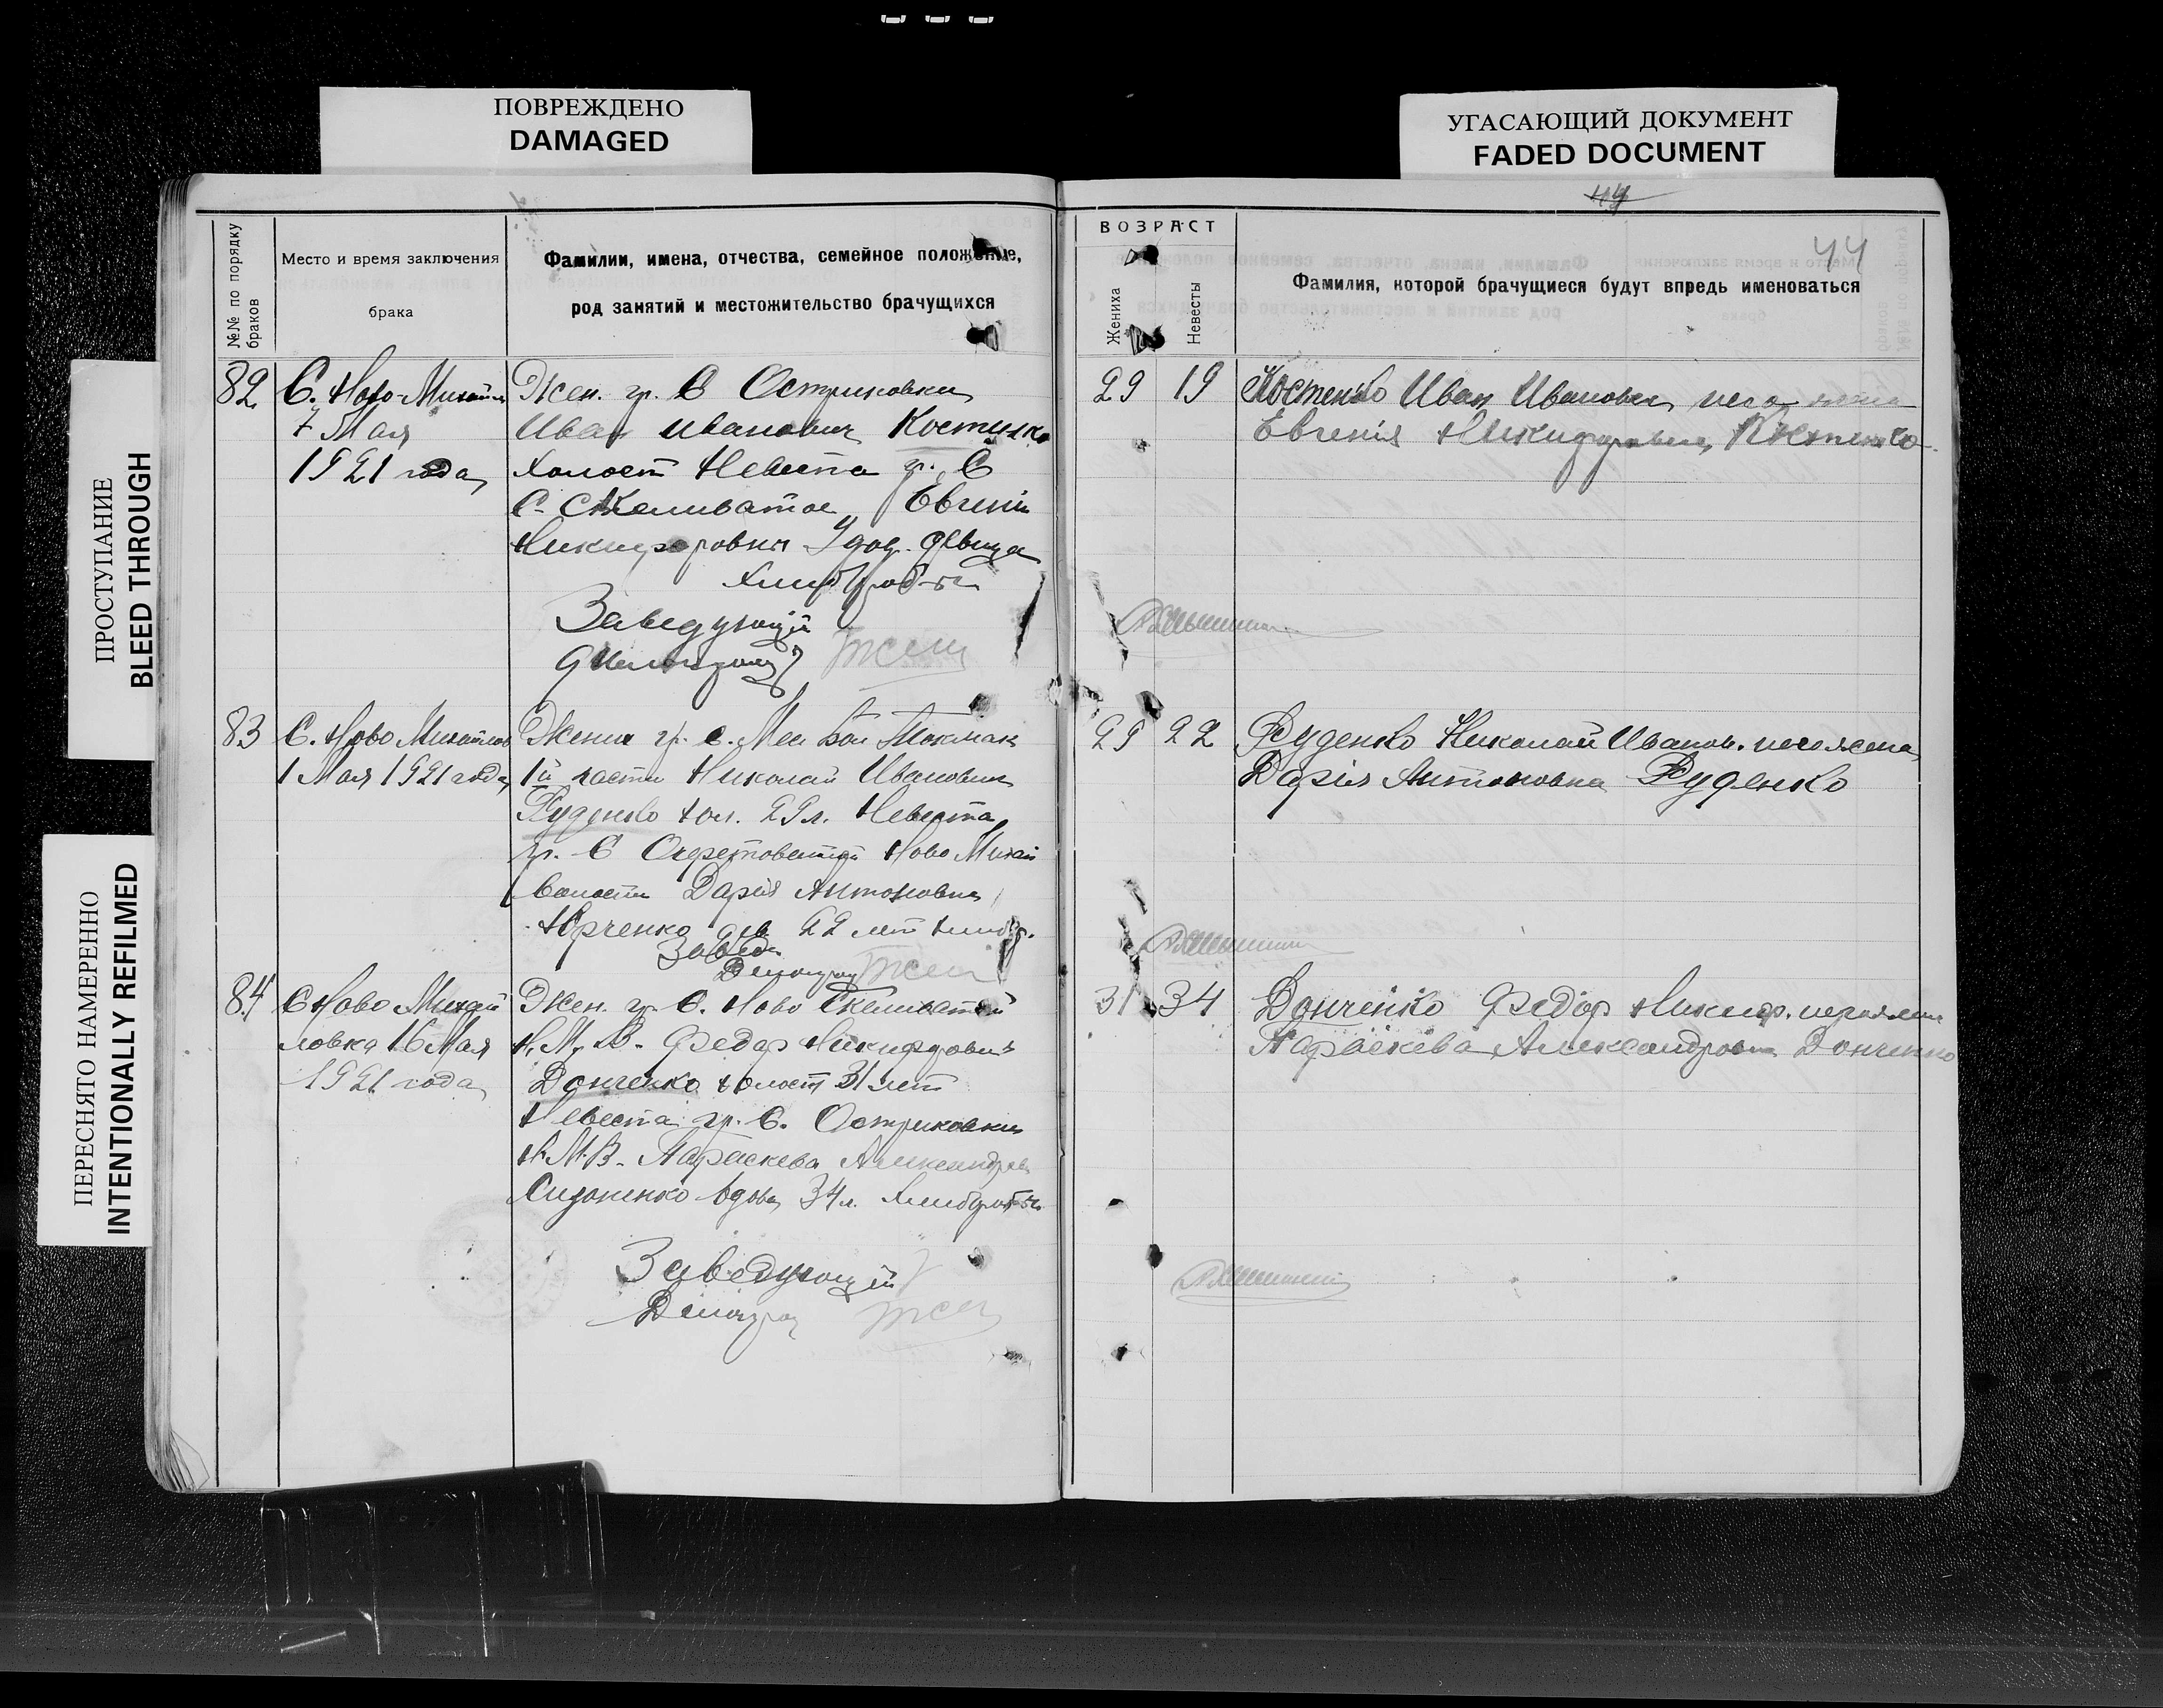 ПОВРЕЖДЕНО
DAMAGED
УГАСАЮЩИЙ ДОКУМЕНТ
FADED DOCUMENT
ПРОСТУПАНИЕ
BLEED THROUGH
ПЕРЕСНЯТО НАМЕРЕННО
INTENTIONALLY REFILMED
№№ по порядку
браков
Место и время заключения
брака
Фамилии, имена, отчества, семейное положение,
род занятий и местожительство брачущихся
82
С. Ново-Михайл
7 Мая
1921 года
Жен. гр. С Остриковки
Иван Иванович Костенко
холост Невеста гр. С
С. Скелеватое Евгенія
Никифоровна девица
хлебороб-ы
Заведующій
83
С. Ново Михайлов
1 Мая 1921 года
Жених гр. с. Бол Токмак
1й части Николай Иванович
Руденко хол. 29 л. Невеста
гр. С Ново Михай
волости Дарія Антоновна
Юрченко дев 22 лет хлебор.
Завед
84
С Ново Михай
ловка 16 Мая
1921 года
Жен. гр. С. Ново Скелеватой
Н. М. В. Федор Никифорович
Донченко холост 31 лет
Невеста гр. С. Остриковки
Н. М. В. Параскева Александров
вдова 34 л. хлеборобы
Заведующій
44
44
ВОЗРАСТ
Жениха
Невесты
Фамилия, которой брачущиеся будут впредь именоваться
29 19 Костенко Иван Иванович, его жена
Евгенія Никифоровна Костенко
29 22 Руденко Николай Иванов. его жена
Дарія Антоновна Руденко
31 34 Донченко Федор Никиф. его жена
Параскева Александровна Донченко